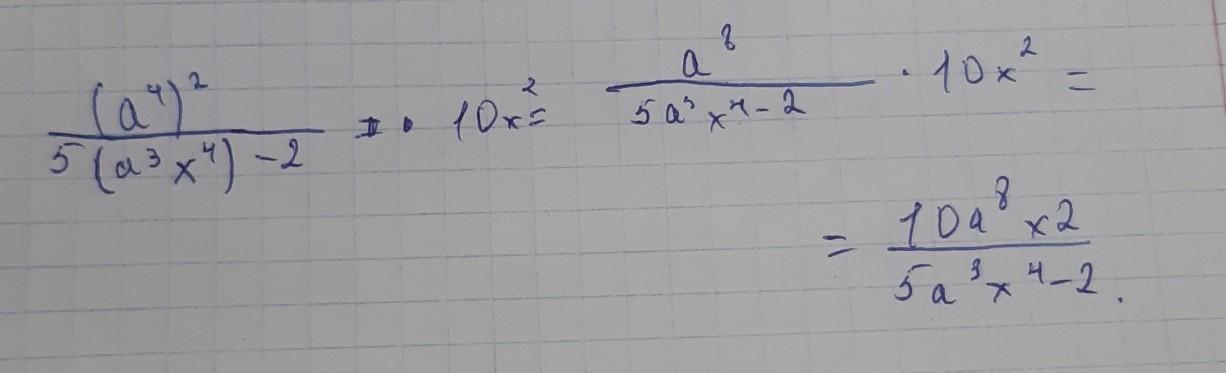 (a⁴)² / 5(a³x⁴) - 2 · 10x² = a⁸ / 5a³x⁴ - 2 · 10x² =
= 10a⁸x2 / 5a³x⁴ - 2.